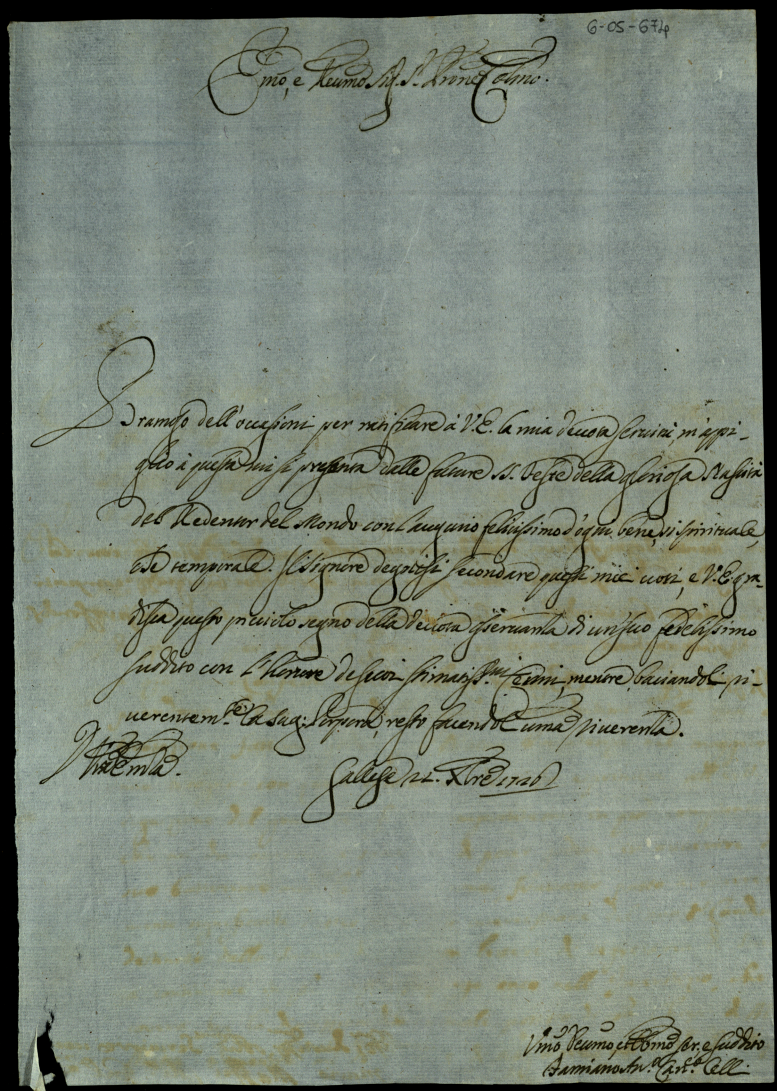 6-05-674
Emo, e Reumo Sig.r S.r Prone Colmo.
Bramoso dell'occasioni per ratificare à V.E. la mia diuota seruitù m'appi-
glio à questa mi si presenta dalle future SS. Feste della gloriosa Nascita
del Redentor del Mondo con l'augurio felicissimo d'ogni bene, si spirituale,
che temporale. Il Signore degnisi secondare questi miei uoti, e V.E. gra-
disca questo picciolo segno della diuota osseruanza di un suo fedelissimo
suddito con l'honore de suoi stimatiss.mi Cenni, mentre baciandole ri-
uerentem.te la Sag: Porpora, resto facendole uma riuerenza.
D V.ra Emza.
Gallese 21. Xbre 1726
Vmo Deumo, et Obmo Ser. e Suddito
Damiano An.o Celli